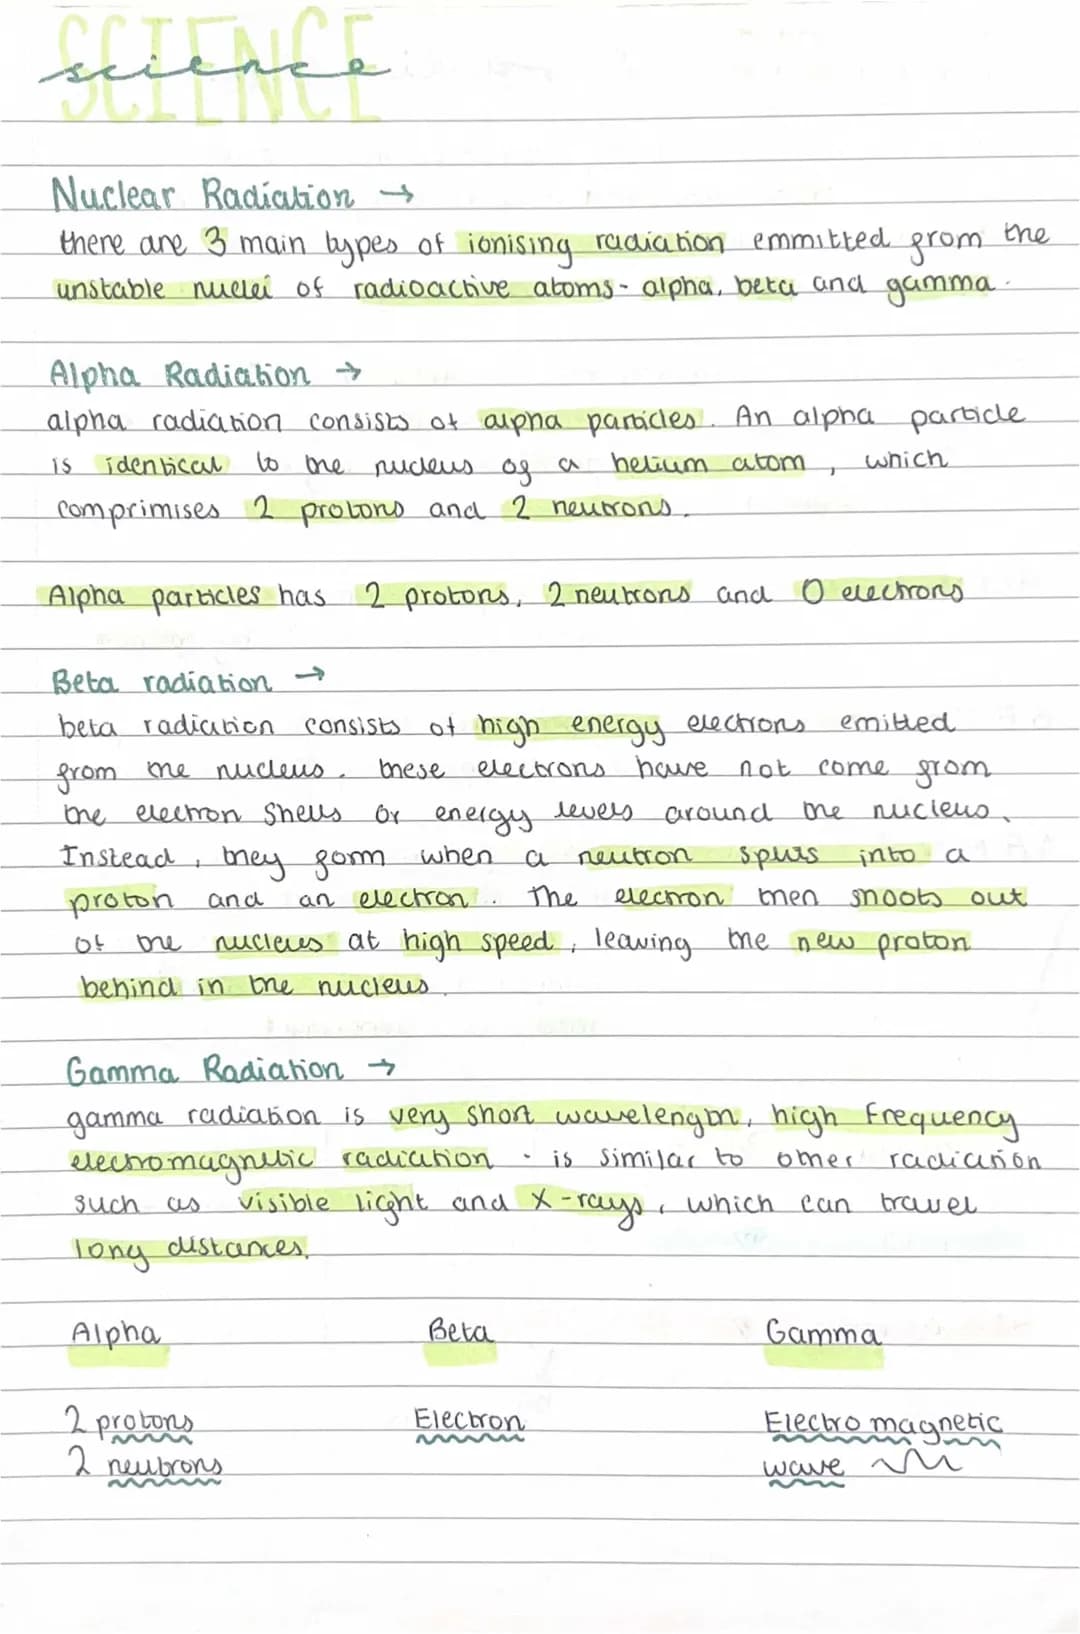 SCIENCE
science
Nuclear Radiation →
there are 3 main types of ionising radiation emmitted from the
unstable nuclei of radioactive atoms - alpha, beta and gamma.
Alpha Radiation →
alpha radiation consists of alpha particles. An alpha particle
is identical to the nucleus of a helium atom, which
comprimises 2 protons and 2 neutrons.
Alpha particles has 2 protons, 2 neutrons and 0 electrons
Beta radiation →
beta radiation consists of high energy electrons emitted
from the nucleus. these electrons have not come from
the electron shells or energy levels around the nucleus.
Instead, they form when a neutron splits into a
proton and an electron. The electron then shoots out
of the nucleus at high speed, leaving the new proton
behind in the nucleus.
Gamma Radiation →
gamma radiation is very short wavelength, high frequency
electromagnetic radiation. is similar to other radiation
such as visible light and X-rays, which can travel
long distances.
Alpha Beta Gamma
2 protons Electron Electro magnetic
2 neutrons wave